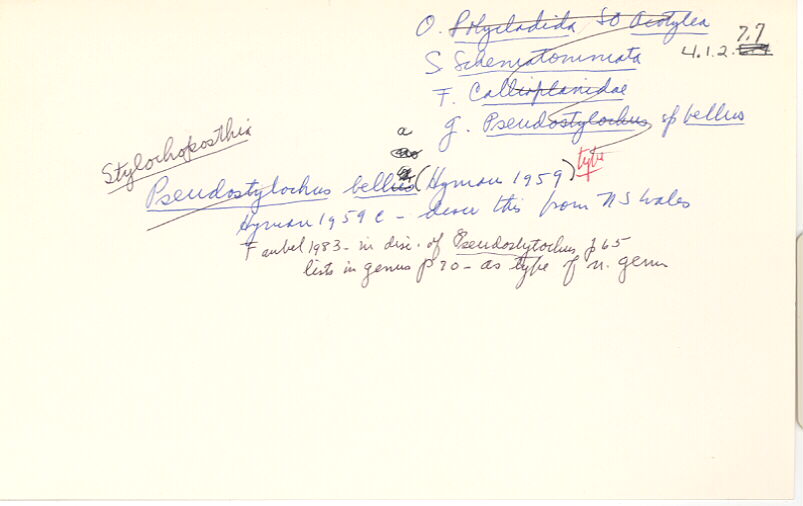 O. Polycladida, SO Acotylea
7.7
4.1.2.
S Schematommata
F. Callioplanidae
g. Pseudostylochus sp bellus
a
Stylochoposthia
type
Pseudostylochus bellus (Hyman 1959)
Hyman 1959 e - descr this from N S Wales
Faubel 1983 - in disc. of Pseudostylochus p 65
lists in genus p 70 - as type of n. genus